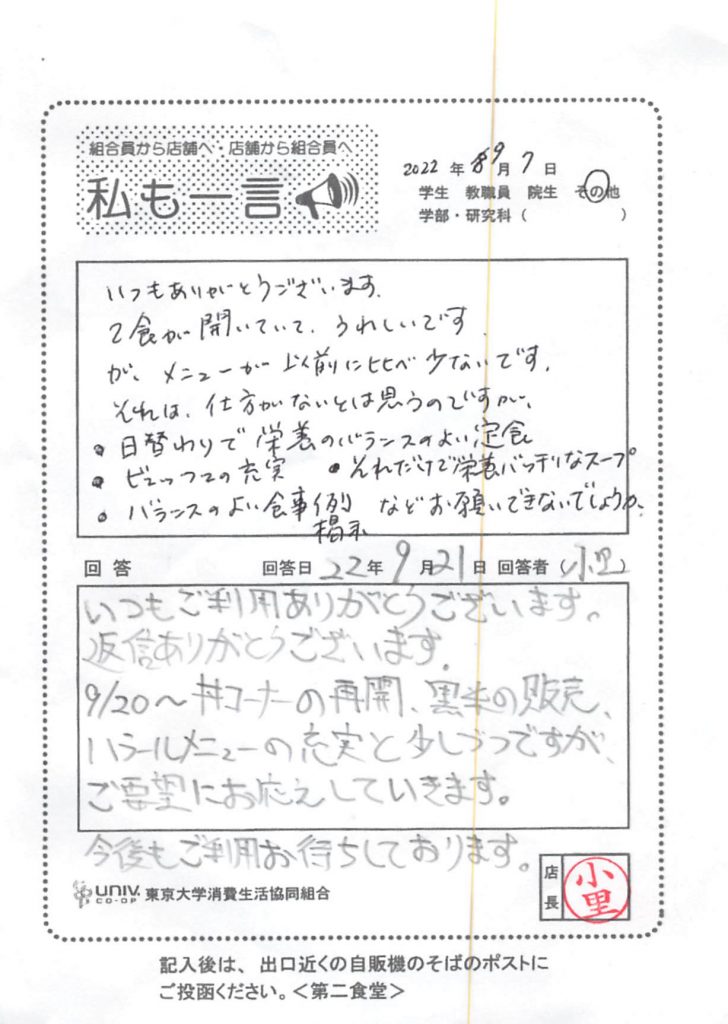 組合員から店舗へ・店舗から組合員へ
私も一言
2022 年 9 月 7 日
学生 教職員 院生 その他
学部・研究科 ( )
いつもありがとうございます.
2食が開いていて、うれしいです.
が、メニューが以前に比べ少ないです.
それは、仕方がないとは思うのですが、
・日替わりで栄養のバランスのよい定食
・ビュッフェの充実 ・それだけで栄養バッチリなスープ
・バランスのよい食事例 などお願いできないでしょうか.
掲示
回答 回答日 22 年 9 月 21 日 回答者 (小里)
いつもご利用ありがとうございます。
返信ありがとうございます.
9/20〜丼コーナーの再開、黒米の販売、
ハラールメニューの充実と少しづつですが、
ご要望にお応えしていきます。
今後もご利用お待ちしております。
UNIV. CO-OP 東京大学消費生活協同組合
店長 小里
記入後は、出口近くの自販機のそばのポストに
ご投函ください。<第二食堂>